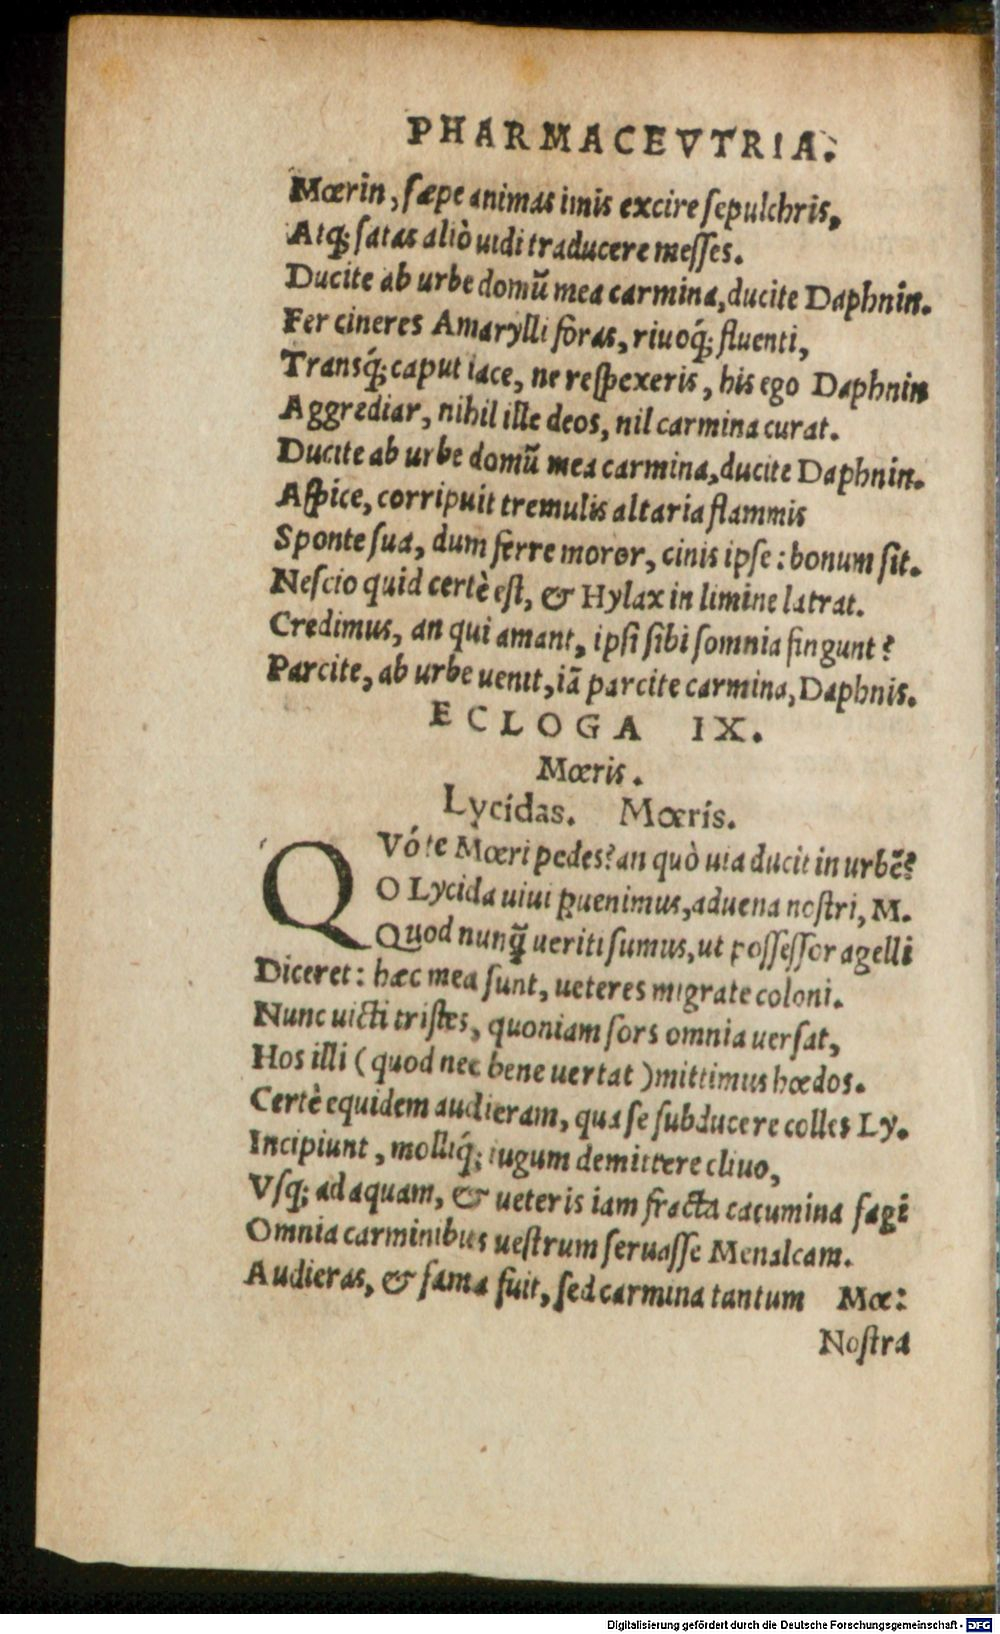 PHARMACEVTRIA.
Mœrin, sæpe animas imis excire sepulchris,
Atq; satas aliò uidi traducere messes.
Ducite ab urbe domũ mea carmina, ducite Daphnin.
Fer cineres Amarylli foras, riuoq́; fluenti,
Transq́; caput iace, ne respexeris, his ego Daphnin
Aggrediar, nihil ille deos, nil carmina curat.
Ducite ab urbe domũ mea carmina, ducite Daphnin.
Aspice, corripuit tremulis altaria flammis
Sponte sua, dum ferre moror, cinis ipse: bonum sit.
Nescio quid certè est, & Hylax in limine latrat.
Credimus, an qui amant, ipsi sibi somnia fingunt?
Parcite, ab urbe uenit, iã parcite carmina, Daphnis.
ECLOGA IX.
Mœris.
Lycidas. Mœris.
QVó te Mœri pedes? an quò uia ducit in urbẽ?
O Lycida uiui ꝑuenimus, aduena nostri, M.
Quod nunq̃ ueriti sumus, ut possessor agelli
Diceret: hæc mea sunt, ueteres migrate coloni.
Nunc uicti tristes, quoniam sors omnia uersat,
Hos illi (quod nec bene uertat) mittimus hœdos.
Certè equidem audieram, qua se subducere colles Ly.
Incipiunt, molliq́; iugum demittere cliuo,
Vsq; ad aquam, & ueteris iam fracta cacumina fagi
Omnia carminibus uestrum seruasse Menalcam.
Audieras, & fama fuit, sed carmina tantum Mœ:
Nostra
Digitalisierung gefördert durch die Deutsche Forschungsgemeinschaft - DFG